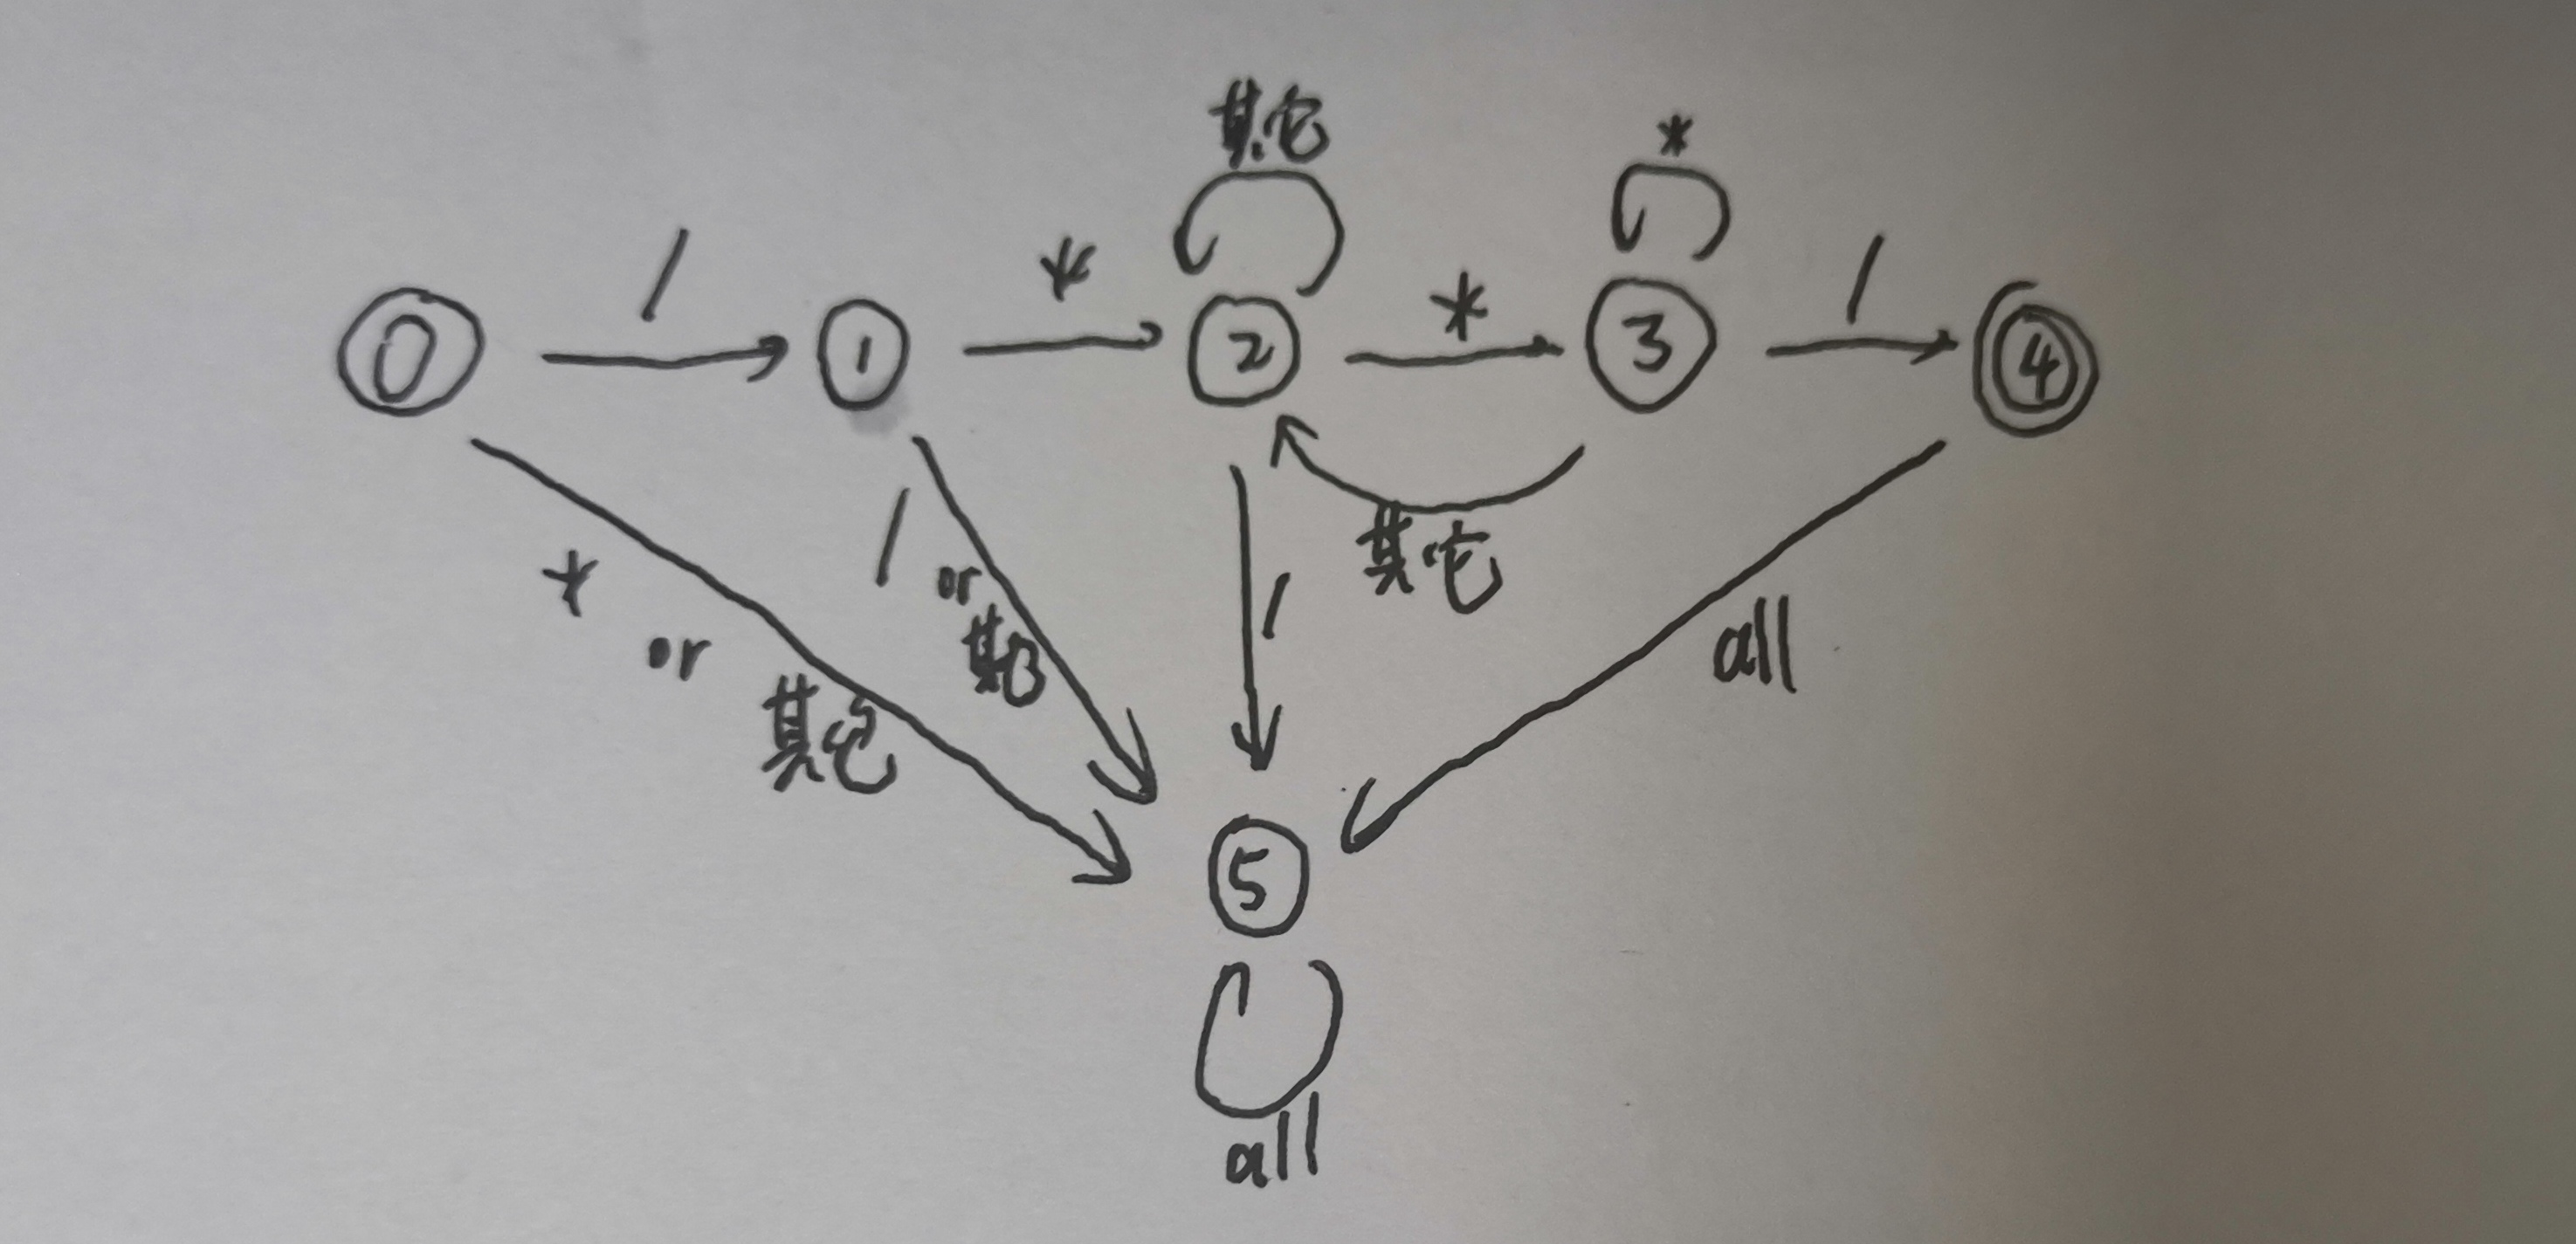 其它
*
/
*
*
/
0
1
2
3
4
*
or
其它
/
or
其它
/
其它
all
5
all